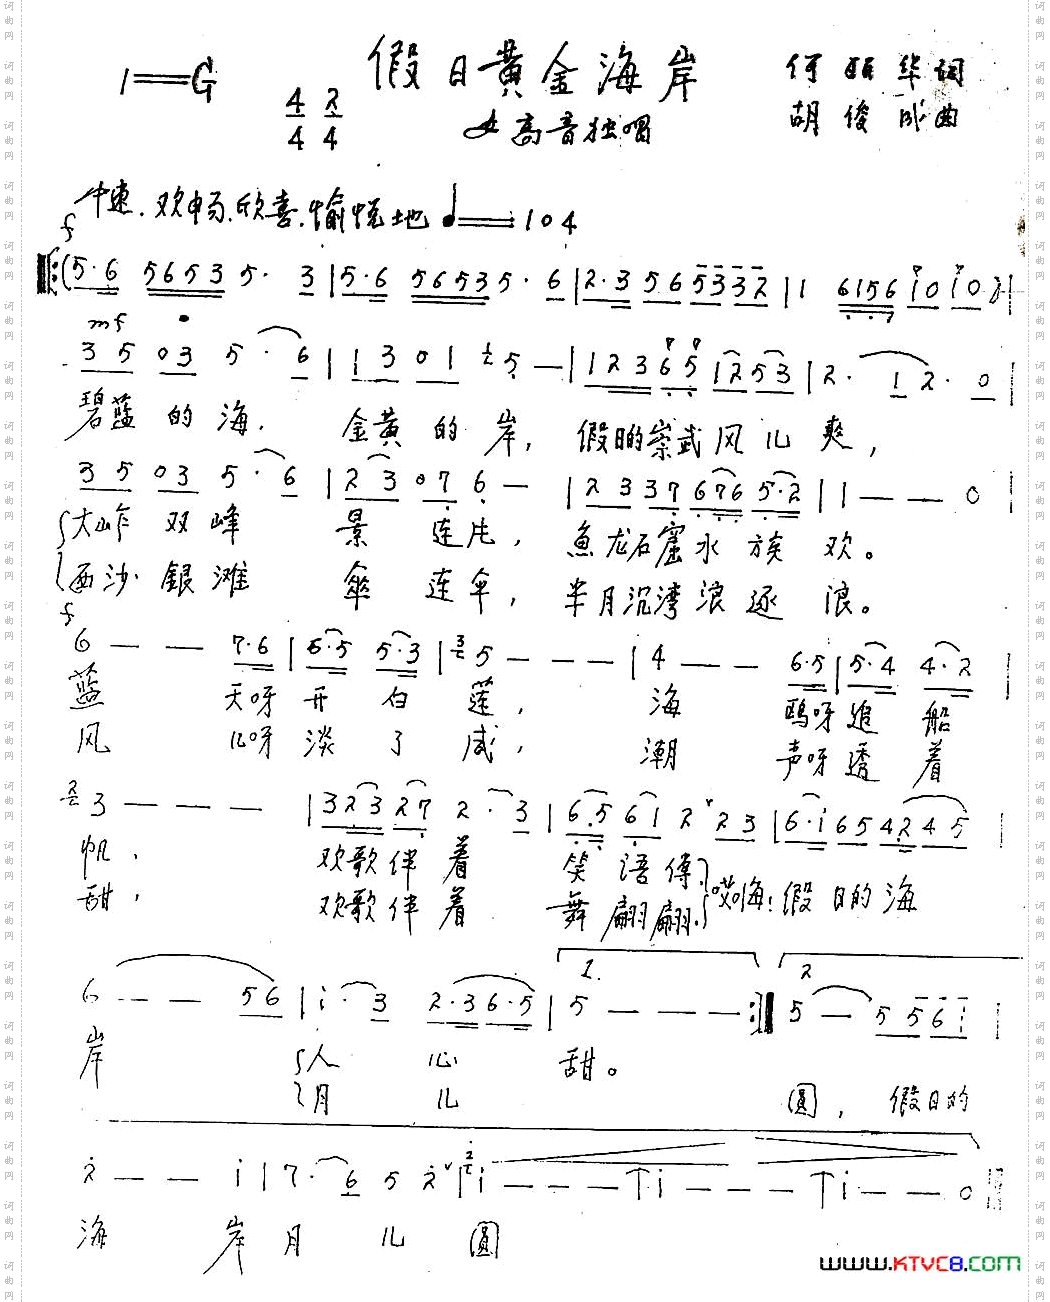 假日黄金海岸
1=G 4/4 2/4
女高音独唱
何丽华词
胡俊成曲
中速.欢畅.欣喜.愉悦地 ♩=104
f
(5·6 5653 5· 3 | 5·6 56535· 6 | 2·3 56 5332 | 1 6156 i0 i0 )|
mf
3 5 03 5·6 | 13 01 5 — | 12365 1253 | 2· 12· 0 |
碧蓝的海. 金黄的岸, 假日的崇武风儿爽,
3 5 03 5·6 | 23 07 6 — | 23 37 676 5·2 | 1 — — 0 |
大岞双峰 景连片, 鱼龙石窟水族欢。
西沙銀滩 傘连伞, 半月沉湾浪逐浪。
f
6 — — 7·6 | 6·5 5·3 | 5 — — — | 4 — — 6·5 | 5·4 4·2 |
蓝 天呀开白莲, 海 鸥呀追船
风 儿呀淡了咸, 潮 声呀透着
3 — — — | 323 27 2·3 | 6·5 61 2 23 | 6·i 65 4245 |
帆, 欢歌伴着 笑语傳 哎嗨!假日的海
甜, 欢歌伴着 舞翩翩.
1. 2
6 — — 56 | i·3 2·36·5 | 5 — — — :| 5 — 5 56i |
岸 人心 甜。
月儿 圓, 假日的
2 — — i | 7·6 5 2 | i — — — | i — — — | i — — 0
海 岸月儿圓
www.KTVC8.com
词曲网